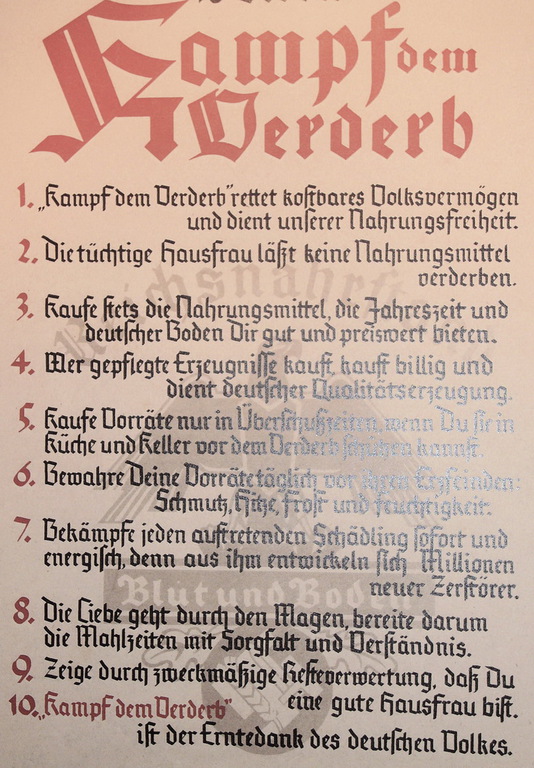 Kampf dem
Verderb
1. „Kampf dem Verderb" rettet kostbares Volksvermögen
und dient unserer Nahrungsfreiheit.
2. Die tüchtige Hausfrau läßt keine Nahrungsmittel
verderben.
3. Kaufe stets die Nahrungsmittel, die Jahreszeit und
deutscher Boden Dir gut und preiswert bieten.
4. Wer gepflegte Erzeugnisse kauft, kauft billig und
dient deutscher Qualitätserzeugung.
5. Kaufe Vorräte nur in Überschußzeiten, wenn Du sie in
Küche und Keller vor dem Verderb schützen kannst.
6. Bewahre Deine Vorräte täglich vor ihren Erzfeinden:
Schmutz, Hitze, Frost und Feuchtigkeit.
7. Bekämpfe jeden auftretenden Schädling sofort und
energisch, denn aus ihm entwickeln sich Millionen
neuer Zerstörer.
8. Die Liebe geht durch den Magen, bereite darum
die Mahlzeiten mit Sorgfalt und Verständnis.
9. Zeige durch zweckmäßige Resteverwertung, daß Du
eine gute Hausfrau bist.
10. „Kampf dem Verderb"
ist der Erntedank des deutschen Volkes.
Blut und Boden